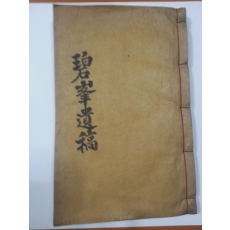 碧峯遺稿